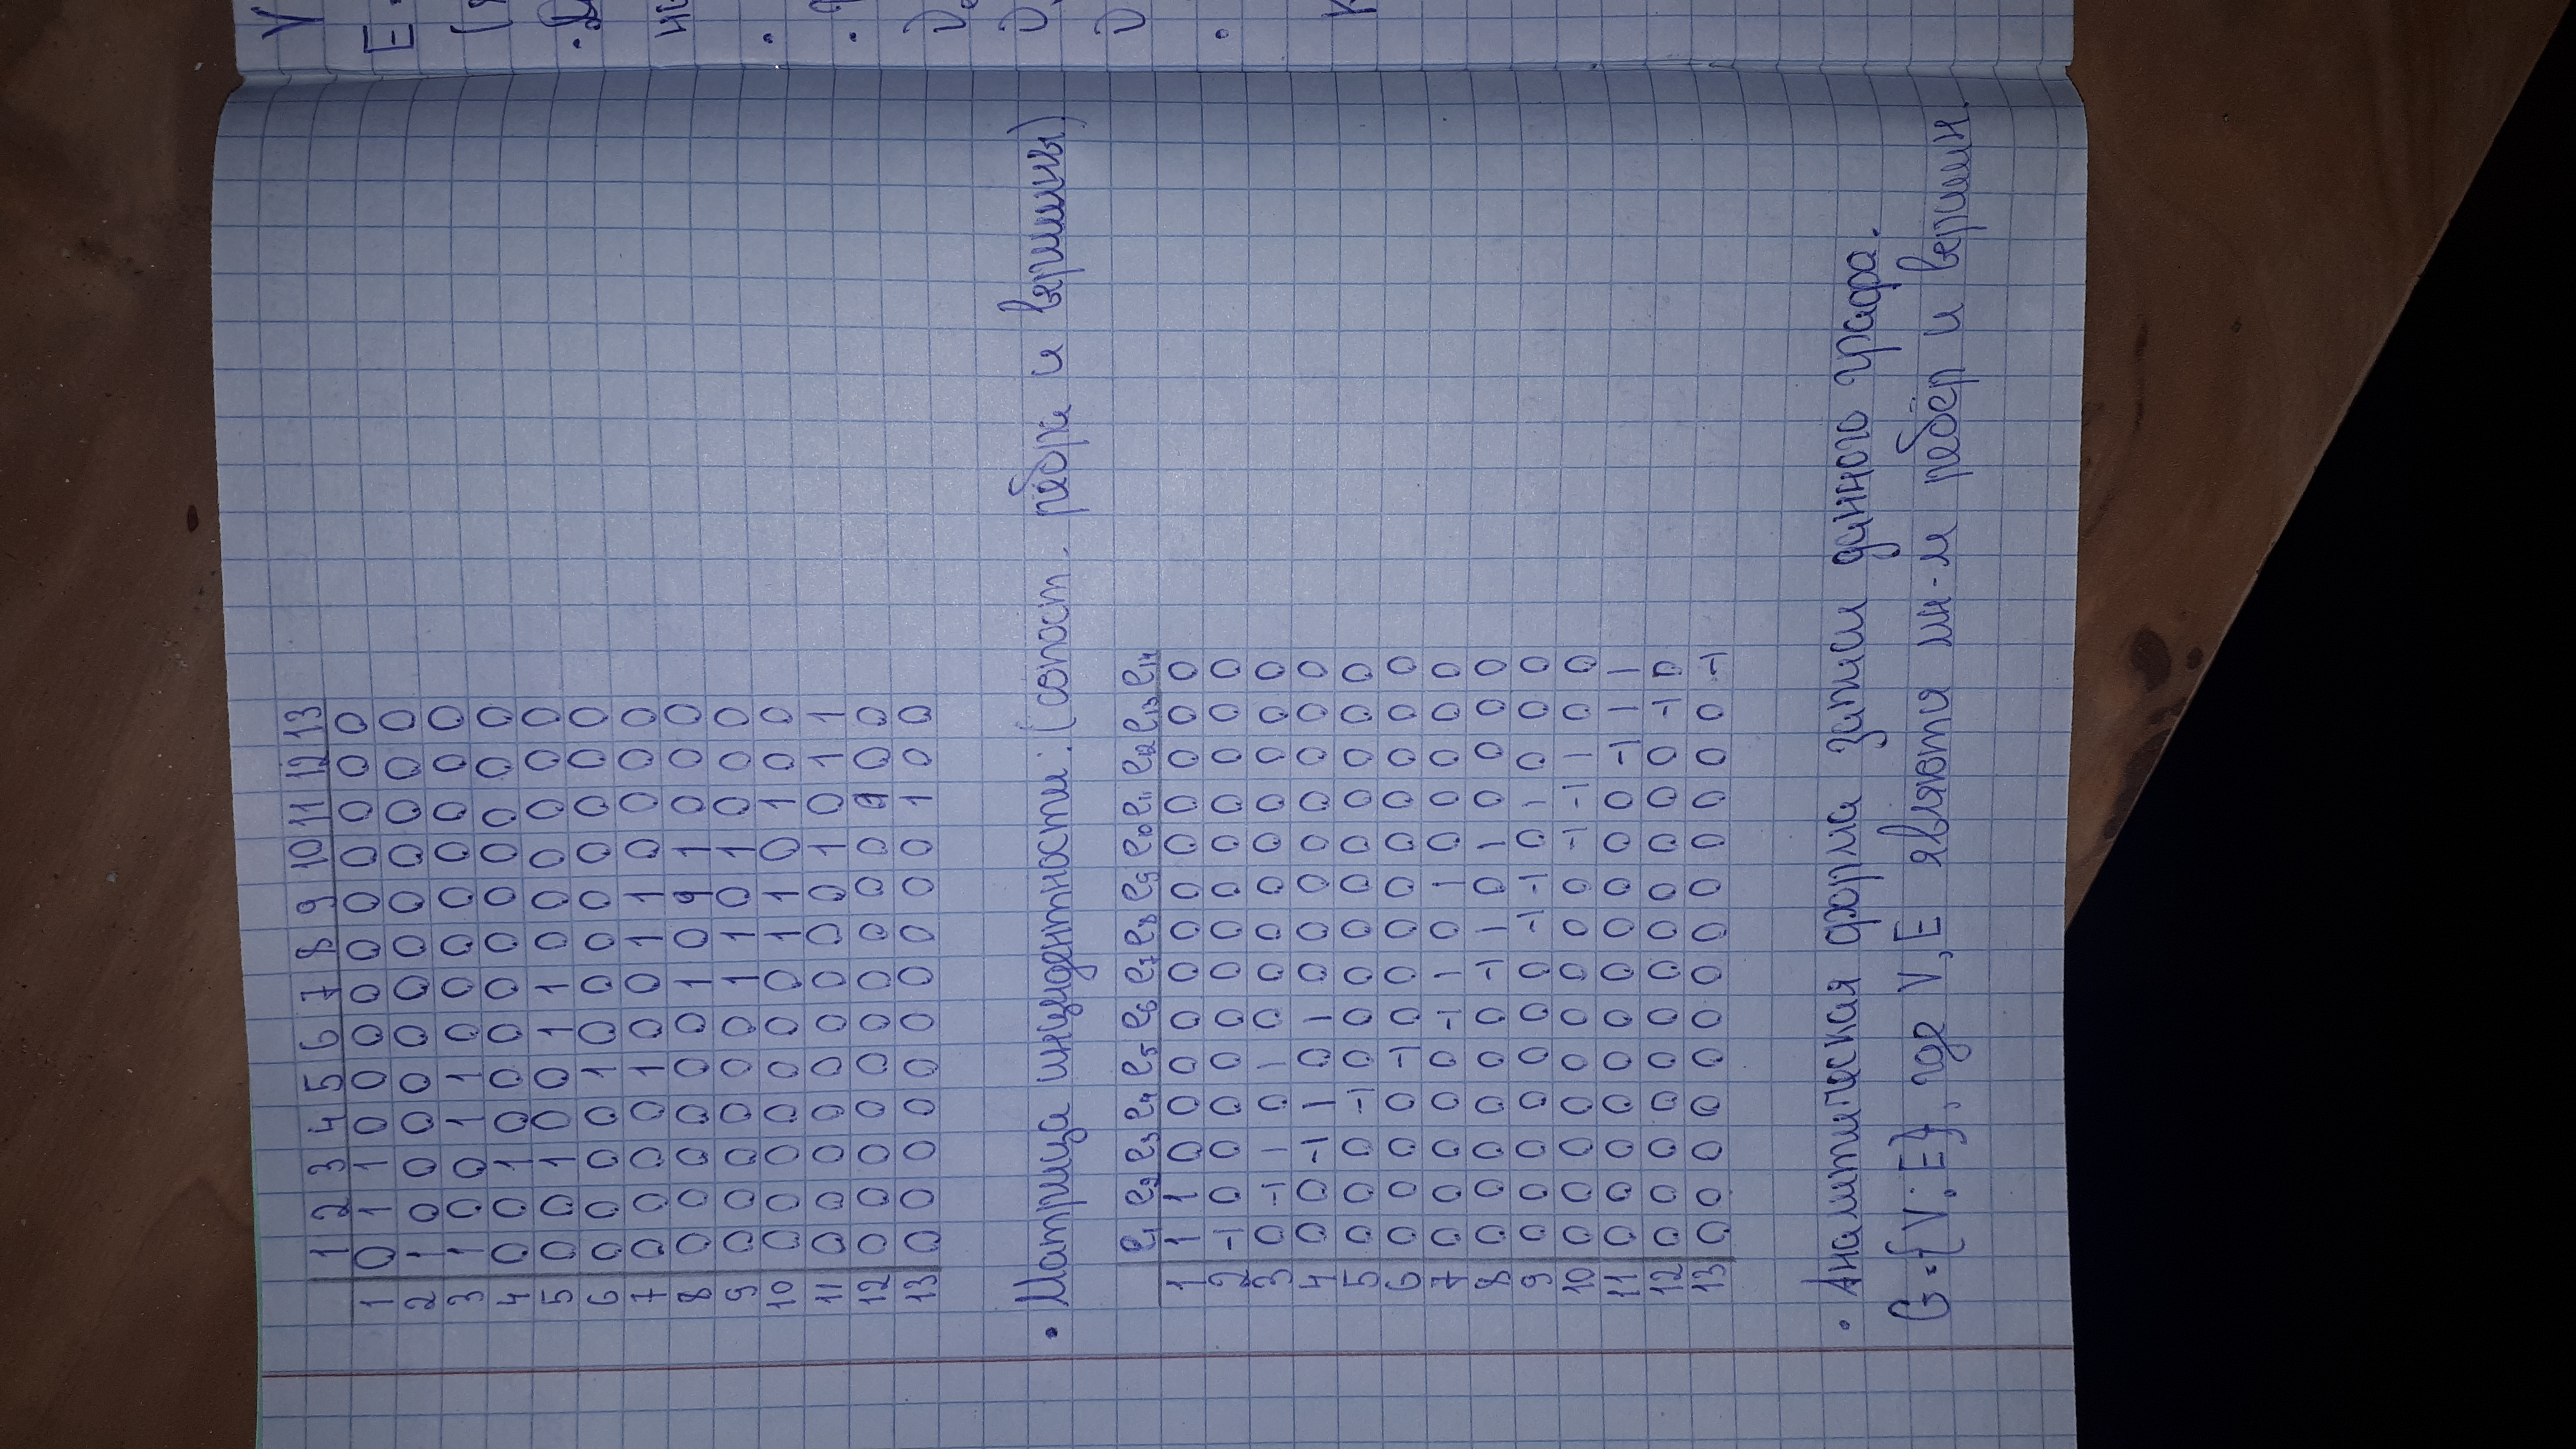 1 2 3 4 5 6 7 8 9 10 11 12 13
1 0 1 1 0 0 0 0 0 0 0 0 0 0
2 1 0 0 0 0 0 0 0 0 0 0 0 0
3 1 0 0 1 1 0 0 0 0 0 0 0 0
4 0 0 1 0 0 0 0 0 0 0 0 0 0
5 0 0 1 0 0 1 1 0 0 0 0 0 0
6 0 0 0 0 1 0 0 0 0 0 0 0 0
7 0 0 0 0 1 0 0 1 1 0 0 0 0
8 0 0 0 0 0 0 1 0 1 1 0 0 0
9 0 0 0 0 0 0 1 1 0 1 0 0 0
10 0 0 0 0 0 0 0 1 1 0 1 0 0
11 0 0 0 0 0 0 0 0 0 1 0 1 1
12 0 0 0 0 0 0 0 0 0 0 1 0 0
13 0 0 0 0 0 0 0 0 0 0 1 0 0
• Матрица инцидентности: (сопост. рёбра и вершины)
e1 e2 e3 e4 e5 e6 e7 e8 e9 e10 e11 e12 e13 e14
1 1 1 0 0 0 0 0 0 0 0 0 0 0 0
2 -1 0 0 0 0 0 0 0 0 0 0 0 0 0
3 0 -1 1 0 1 0 0 0 0 0 0 0 0 0
4 0 0 -1 1 0 1 0 0 0 0 0 0 0 0
5 0 0 0 -1 0 0 0 0 0 0 0 0 0 0
6 0 0 0 0 -1 0 0 0 0 0 0 0 0 0
7 0 0 0 0 0 -1 1 0 1 0 0 0 0 0
8 0 0 0 0 0 0 -1 1 0 1 0 0 0 0
9 0 0 0 0 0 0 0 -1 -1 0 1 0 0 0
10 0 0 0 0 0 0 0 0 0 -1 -1 1 0 0
11 0 0 0 0 0 0 0 0 0 0 0 -1 1 1
12 0 0 0 0 0 0 0 0 0 0 0 0 -1 0
13 0 0 0 0 0 0 0 0 0 0 0 0 0 -1
• Аналитическая форма записи данного графа.
G={V; E}, где V, E являются мн-м рёбер и вершин.
V
E